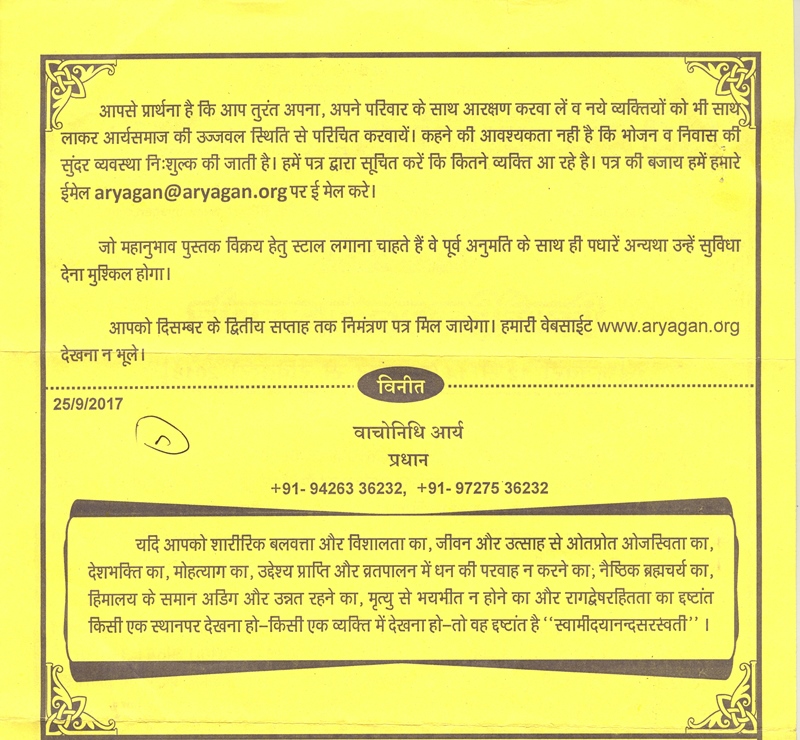 आपसे प्रार्थना है कि आप तुरंत अपना, अपने परिवार के साथ आरक्षण करवा लें व नये व्यक्तियों को भी साथ
लाकर आर्यसमाज की उज्जवल स्थिति से परिचित करवायें। कहने की आवश्यकता नही है कि भोजन व निवास की
सुंदर व्यवस्था निःशुल्क की जाती है। हमें पत्र द्वारा सूचित करें कि कितने व्यक्ति आ रहे है। पत्र की बजाय हमें हमारे
ईमेल aryagan@aryagan.org पर ई मेल करे।
जो महानुभाव पुस्तक विक्रय हेतु स्टाल लगाना चाहते हैं वे पूर्व अनुमति के साथ ही पधारें अन्यथा उन्हें सुविधा
देना मुश्किल होगा।
आपको दिसम्बर के द्वितीय सप्ताह तक निमंत्रण पत्र मिल जायेगा। हमारी वेबसाईट www.aryagan.org
देखना न भूले।
विनीत
25/9/2017
वाचोनिधि आर्य
प्रधान
+91- 94263 36232, +91- 97275 36232
यदि आपको शारीरिक बलवत्ता और विशालता का, जीवन और उत्साह से ओतप्रोत ओजस्विता का,
देशभक्ति का, मोहत्याग का, उद्देश्य प्राप्ति और व्रतपालन में धन की परवाह न करने का; नैष्ठिक ब्रह्मचर्य का,
हिमालय के समान अडिग और उन्नत रहने का, मृत्यु से भयभीत न होने का और रागद्वेषरहितता का द्दष्टांत
किसी एक स्थानपर देखना हो-किसी एक व्यक्ति में देखना हो-तो वह द्दष्टांत है ‘‘स्वामीदयानन्दसरस्वती’’ ।